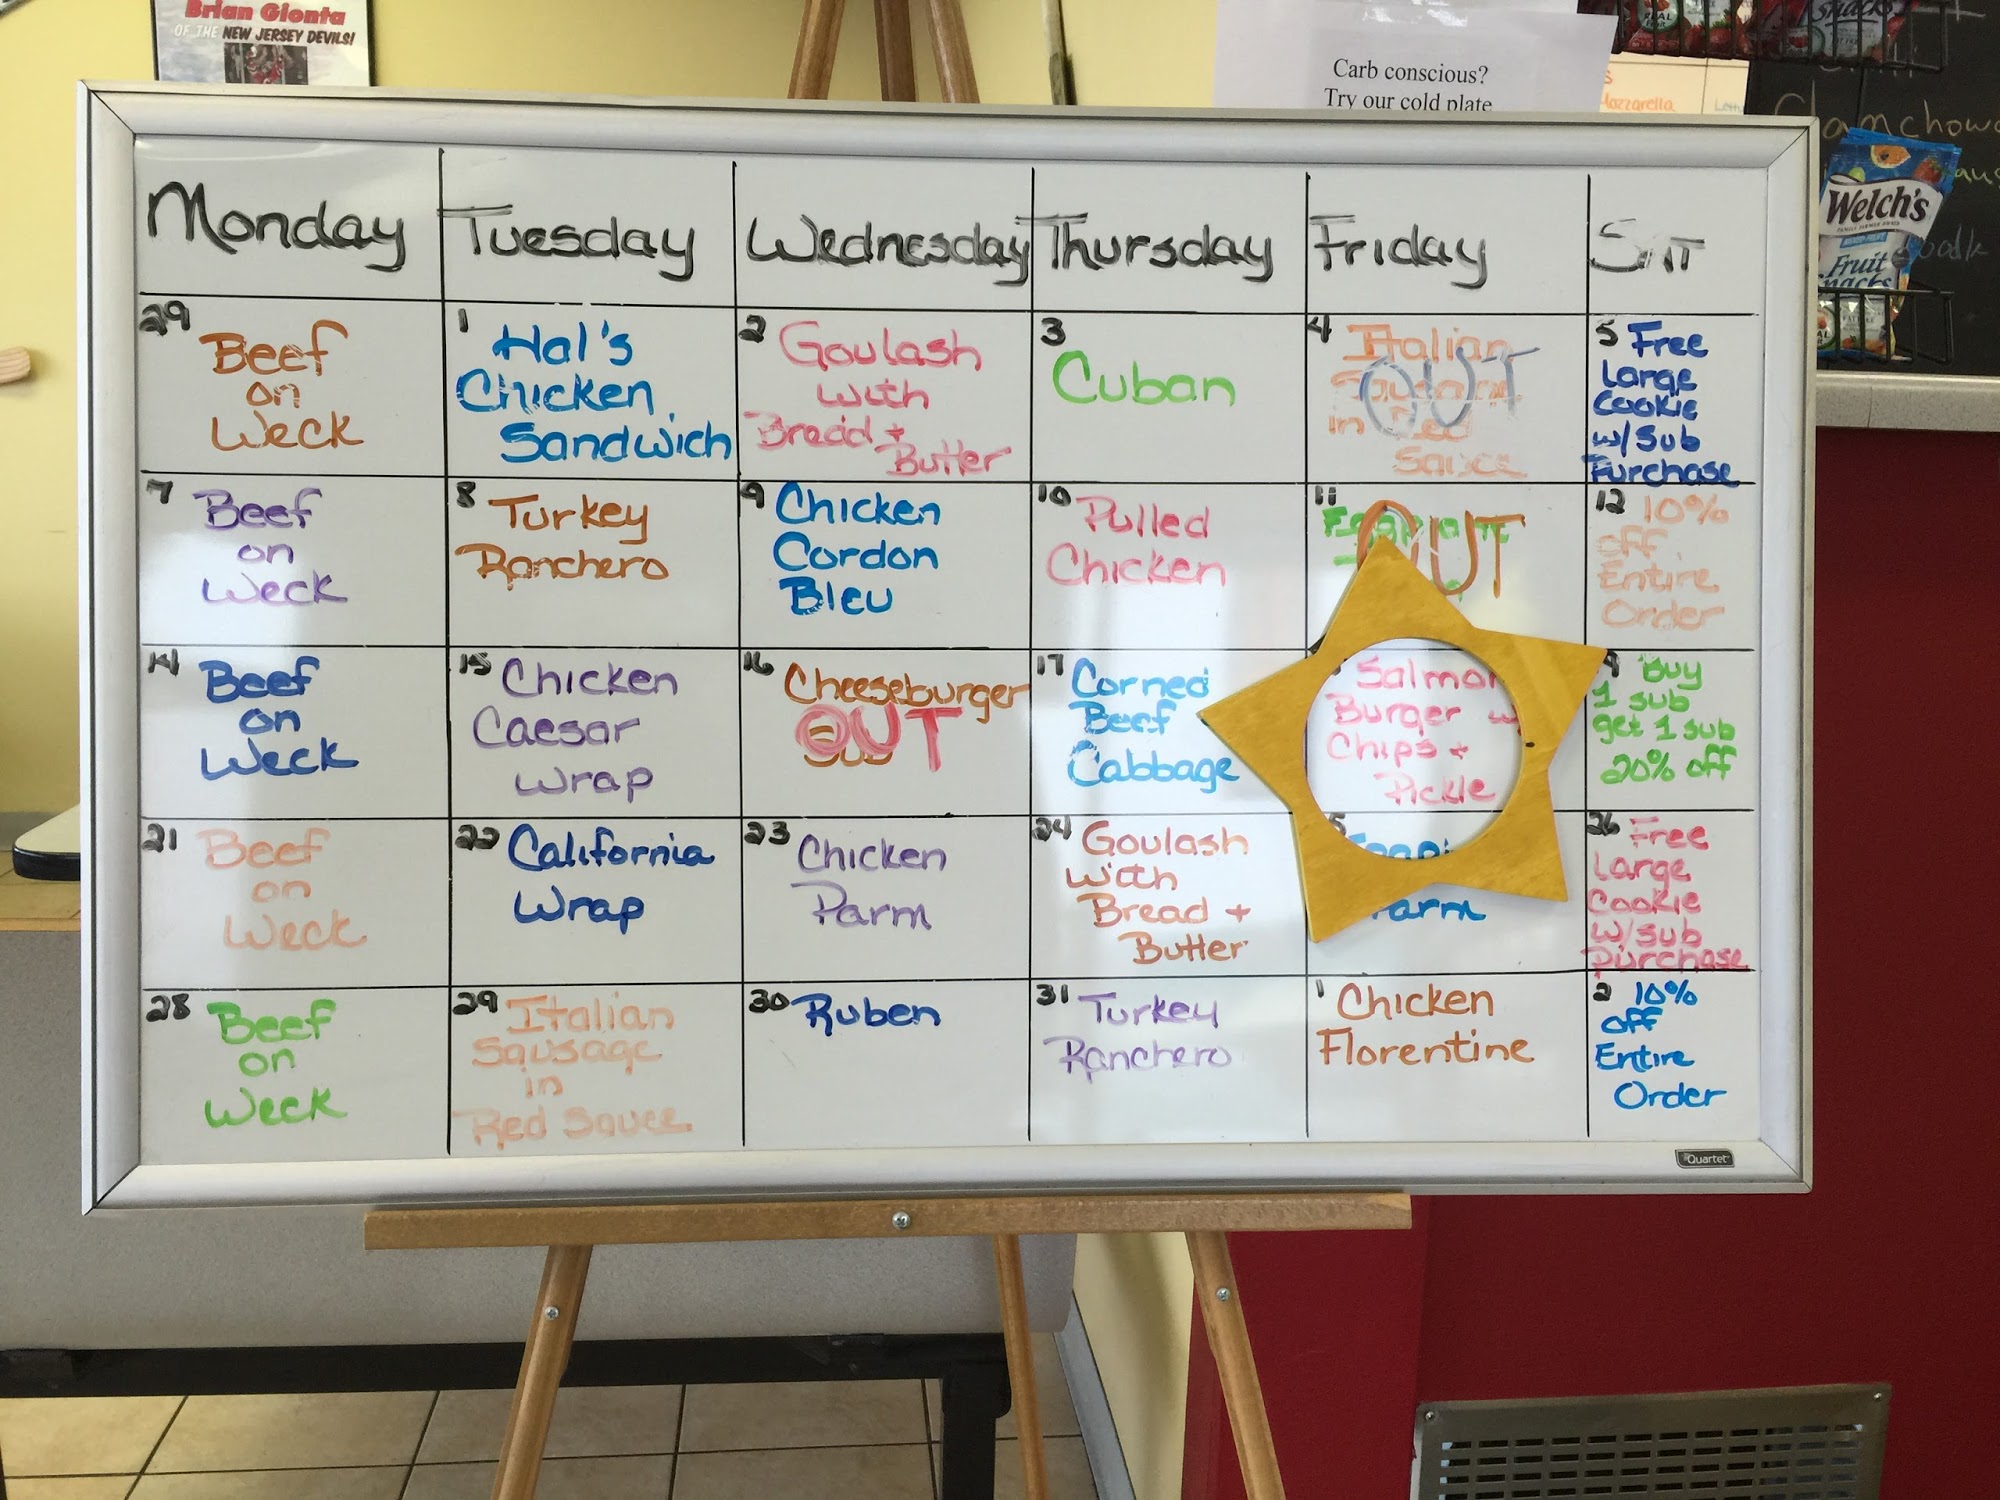 Brian Gionta
OF THE NEW JERSEY DEVILS!
Carb conscious?
Try our cold plate
Mozzarella
Welch's
Fruit
Snacks
Monday Tuesday Wednesday Thursday Friday Sat
29 Beef
on
Weck
1 Hal's
Chicken
Sandwich
2 Goulash
with
Bread +
Butter
3
Cuban
4 Italian
Sausage
in Red
Sauce
OUT
5 Free
Large
Cookie
w/sub
Purchase
7 Beef
on
Weck
8 Turkey
Ranchero
9 Chicken
Cordon
Bleu
10 Pulled
Chicken
11
OUT
12 10%
off
Entire
Order
14 Beef
on
Weck
15 Chicken
Caesar
Wrap
16 Cheeseburger
OUT
17 Corned
Beef
Cabbage
Salmon
Burger w/
Chips +
Pickle
Buy
1 sub
get 1 sub
20% off
21 Beef
on
Weck
22 California
Wrap
23 Chicken
Parm
24 Goulash
with
Bread +
Butter
Parm
26 Free
Large
Cookie
w/sub
purchase
28 Beef
on
Weck
29 Italian
Sausage
in
Red Sauce
30 Ruben
31 Turkey
Ranchero
1 Chicken
Florentine
2 10%
off
Entire
Order
Quartet